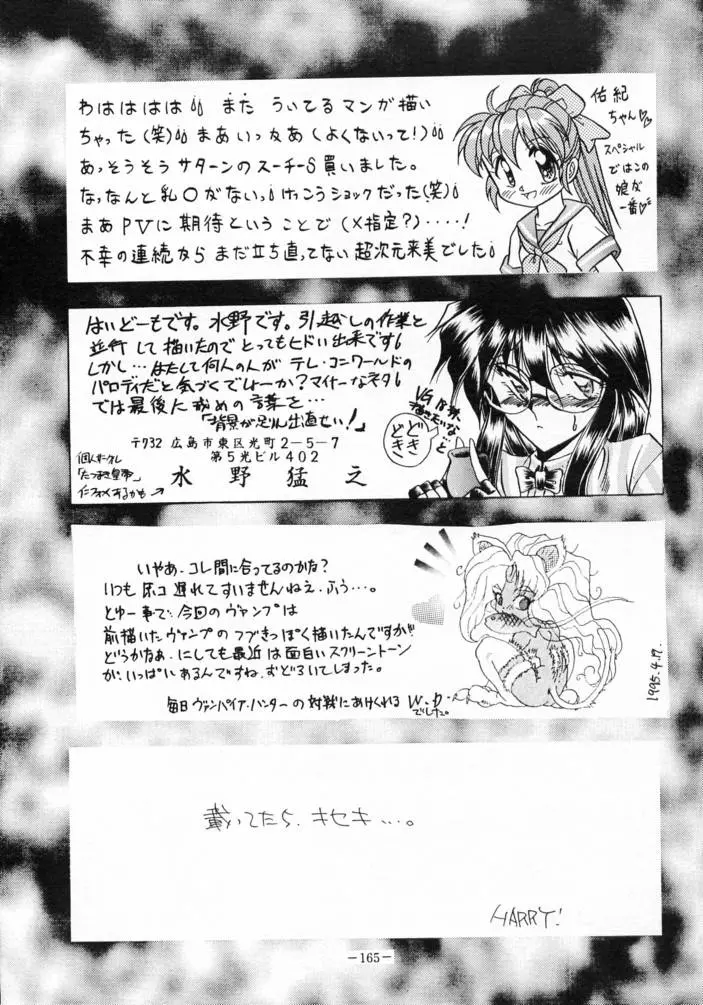 わはははは!! また ういてるマンガ描い
ちゃった(笑)!! まあいっかあ(よくないって!)!!
あっそうそう サターンのスーチーS買いました。
なっなんと乳○がないっ!けっこうショックだった(笑)!
まあPVに期待ということで(X指定?)‥‥!
不幸の連続から まだ立ち直ってない 超次元来美でした!
佑紀
ちゃん♡♡
スペシャル
ではこの
娘が
一番♡
はいどーもです。水野です。引越しの作業と
並行して描いたのでとってもヒドい出来です!
しかし…はたして何人の人が テレ・コンワールドの
パロディだと気づくでしょーか?マイナーなネタ!
では最後に戒めの言葉を…
「背景が足りん出直せい!」
〒732 広島市東区光町2-5-7
第5光ビル402
水野猛之
個人サークル
「たつまき皇帝」
VG
…と
どき
どき
いやあ、コレ間に合ってるのかな?
いつも 遅れてすいませんねえ、ふう…。
とゆー事で、今回のヴァンプは
前描いたヴァンプのつづきっぽく描いたんですが!!
どうかなぁ、にしても最近は面白いスクリーントーン
が、いっぱいあるんですね、おどろいてしまった。
毎日ヴァンパイア・ハンターの対戦にあけくれる W.D
でした。
1995.4.17.
載ってたら、キセキ…。
HARRY!
-165-